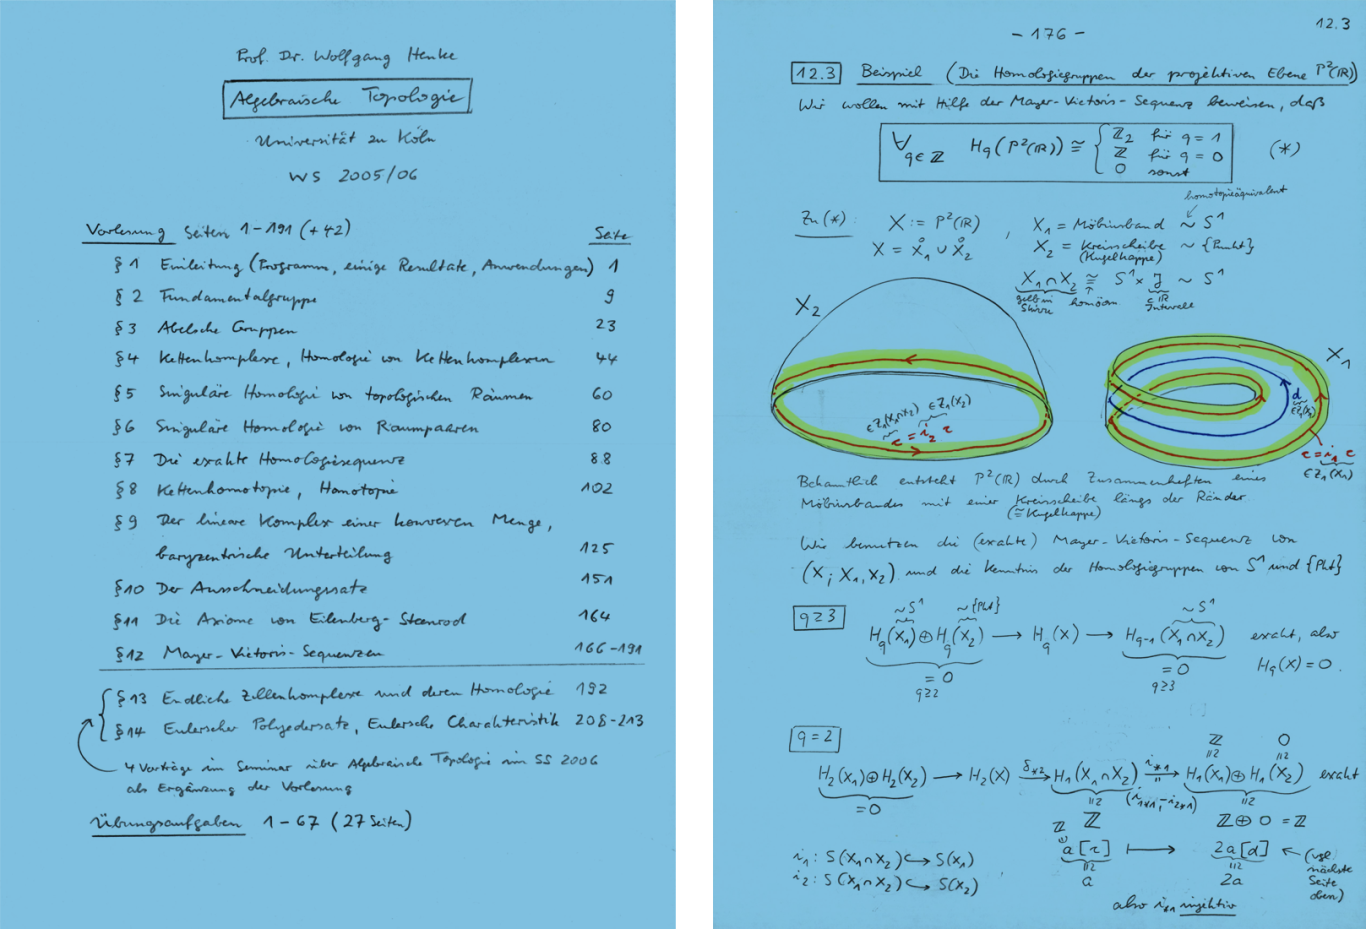 Prof. Dr. Wolfgang Henke
Algebraische Topologie
Universität zu Köln
WS 2005/06
Vorlesung Seiten 1-191 (+42) Seite
§ 1 Einleitung (Programm, einige Resultate, Anwendungen) 1
§ 2 Fundamentalgruppe 9
§ 3 Abelsche Gruppen 23
§ 4 Kettenkomplexe, Homologie von Kettenkomplexen 44
§ 5 Singuläre Homologie von topologischen Räumen 60
§ 6 Singuläre Homologie von Raumpaaren 80
§ 7 Die exakte Homologiesequenz 88
§ 8 Kettenhomotopie, Homotopie 102
§ 9 Der lineare Komplex einer konvexen Menge,
baryzentrische Unterteilung 125
§ 10 Der Ausschneidungssatz 151
§ 11 Die Axiome von Eilenberg-Steenrod 164
§ 12 Mayer-Vietoris-Sequenzen 166-191
§ 13 Endliche Zellenkomplexe und deren Homologie 192
§ 14 Eulerscher Polyedersatz, Eulersche Charakteristik 208-213
4 Vorträge im Seminar über Algebraische Topologie im SS 2006
als Ergänzung der Vorlesung
Übungsaufgaben 1-67 (27 Seiten)
12.3
- 176 -
12.3 Beispiel (Die Homologiegruppen der projektiven Ebene P²(ℝ))
Wir wollen mit Hilfe der Mayer-Vietoris-Sequenz beweisen, daß
∀ q∈ℤ H_q(P²(ℝ)) ≅ { ℤ₂ für q = 1
ℤ für q = 0 (*)
0 sonst
homotopieäquivalent
Zu (*) X := P²(ℝ) , X₁ = Möbiusband ~ S¹
X = X̊₁ ∪ X̊₂ X₂ = Kreisscheibe ~ {Punkt}
(Kugelkappe)
X₁∩X₂ ≅ S¹ × J ~ S¹
gelb in Skizze homöom. ⊂ ℝ Intervall
X₂
X₁
∈Z₁(X₁∩X₂) ∈Z₁(X₂)
τ = i₂ τ
d
∈Z₁(X₁)
τ = i₁ τ
∈Z₁(X₁)
Bekanntlich entsteht P²(ℝ) durch Zusammenheften eines
Möbiusbandes mit einer Kreisscheibe längs der Ränder.
(≅ Kugelkappe)
Wir benutzen die (exakte) Mayer-Vietoris-Sequenz von
(X; X₁, X₂) und die Kenntnis der Homologiegruppen von S¹ und {Pkt}
q≥3
~S¹ ~{Pkt} ~S¹
H_q(X₁) ⊕ H_q(X₂) → H_q(X) → H_{q-1}(X₁∩X₂) exakt, also
= 0 = 0 H_q(X) = 0.
q≥2 q≥3
q=2
ℤ 0
H₂(X₁)⊕H₂(X₂) → H₂(X) δ_{*2}→ H₁(X₁∩X₂) i_{*1}→ H₁(X₁)⊕H₁(X₂) exakt
= 0 (i_{1*1}, -i_{2*1})
ℤ ℤ⊕0 = ℤ
ℤ
a[τ] ↦ 2a[d] ← (vgl. nächste Seite oben)
a 2a
i₁: S(X₁∩X₂) ↪ S(X₁)
i₂: S(X₁∩X₂) ↪ S(X₂)
also i_{*1} injektiv